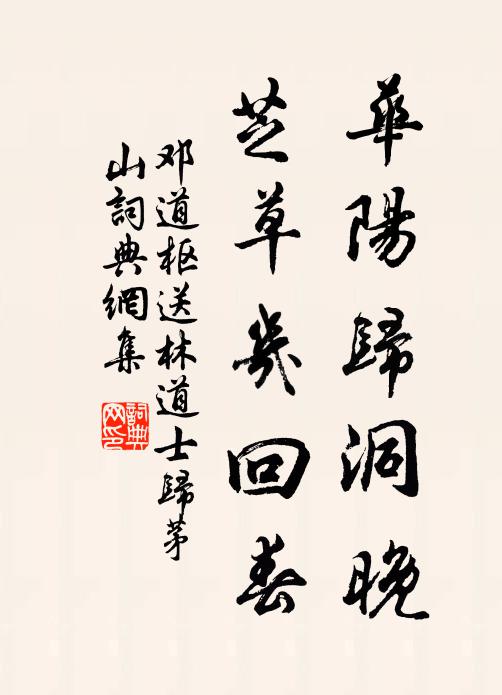 華陽歸洞晚
芝草幾回春
邓道枢送林道士歸茅
山詞典網集
詞典网印